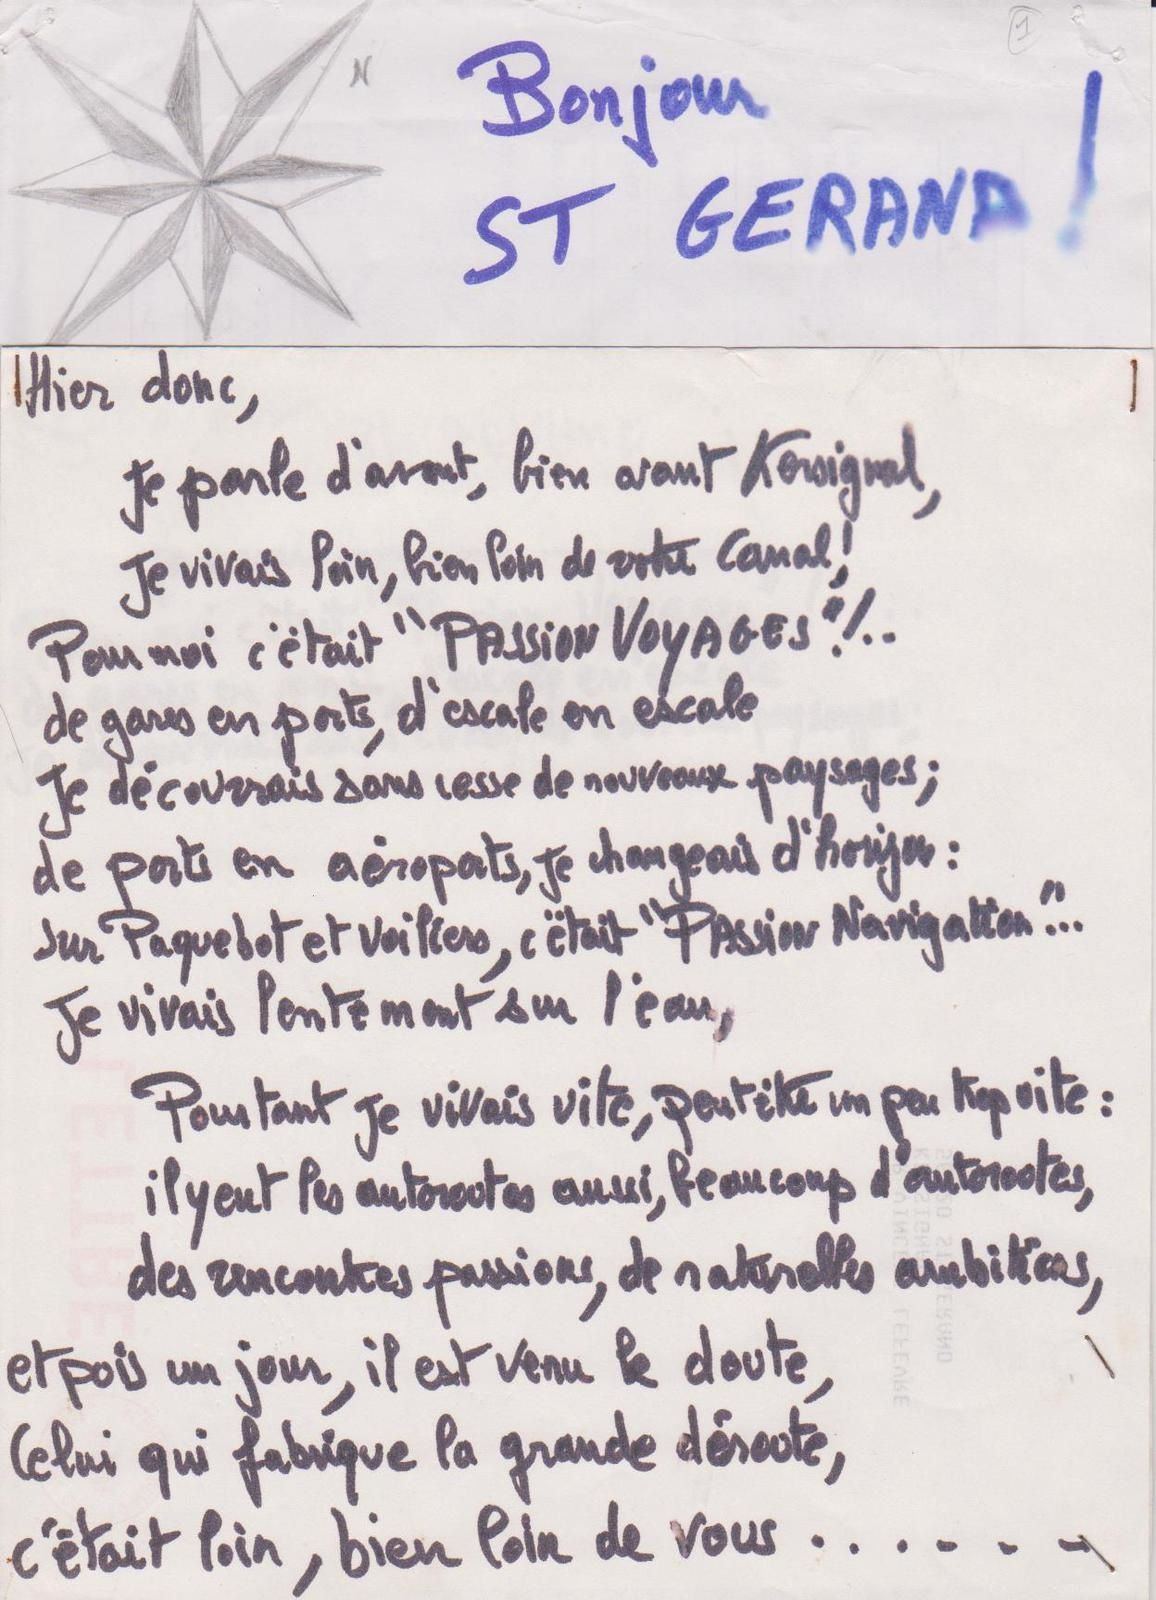 1
N
Bonjour
ST GERAND !
Hier donc,
Je parle d'avant, bien avant Kersignal,
Je vivais loin, bien loin de votre Canal!
Pour moi c'était "PASSION VOYAGES"!..
de gares en ports, d'escale en escale
Je découvrais sans cesse de nouveaux paysages;
de ports en aéroports, je changeais d'horizon :
sur Paquebot et Voiliers, c'était "PASSION Navigation"...
Je vivais lentement sur l'eau,
Pourtant je vivais vite, peut être un peu trop vite :
il y eut les autoroutes aussi, beaucoup d'autoroutes,
des rencontres passions, de naturelles ambitions,
et puis un jour, il est venu le doute,
Celui qui fabrique la grande déroute,
c'était loin, bien loin de vous . . . . - - -